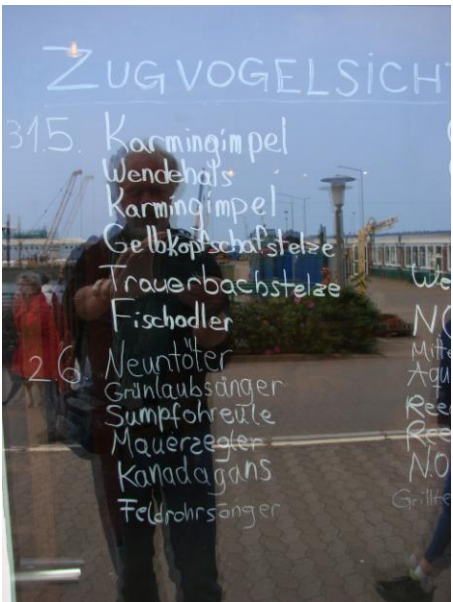 ZUGVOGELSICHT
31.5. Karmingimpel
Wendehals
Karmingimpel
Gelbkopfschafstelze
Trauerbachstelze
Fischadler
2.6. Neuntöter
Grünlaubsänger
Sumpfohreule
Mauersegler
Kanadagans
Feldrohrsänger
We
N
Mitte
Aqu
Ree
Ree
N.O
Grilte